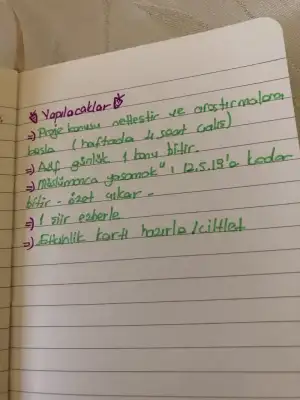 Yapılacaklar
⇒) Proje konusu netleştir ve araştırmalara
başla (haftada 4 saat çalış)
⇒) günlük 1 konu bitir.
⇒) "Müslümanca yaşamak" 12.5.19'a kadar
bitir - özet çıkar.
⇒) 1 şiir ezberle
⇒) Etkinlik kartı hazırla/ciltlet